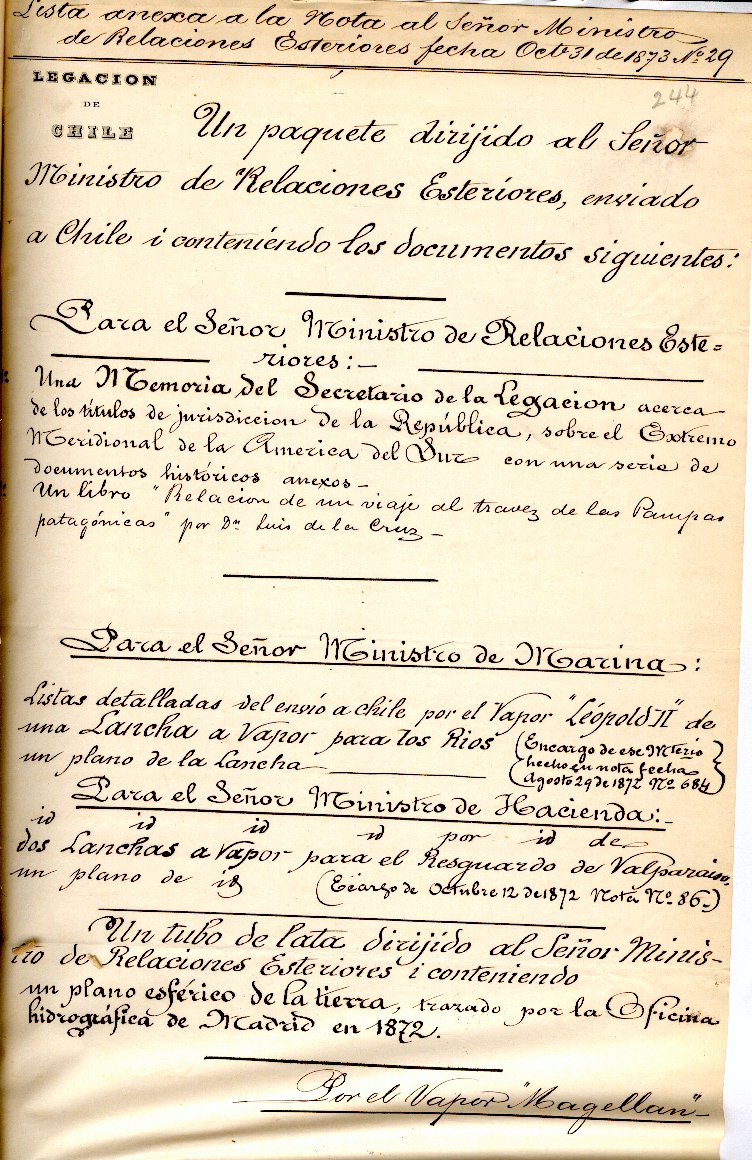 Lista anexa a la Nota al Señor Ministro
de Relaciones Esteriores fecha Octe 31 de 1873 No. 29
LEGACION
DE
CHILE
244
Un paquete dirijido al Señor
Ministro de Relaciones Esteriores, enviado
a Chile i conteniendo los documentos siguientes:
Para el Señor Ministro de Relaciones Este=
riores:—
Una Memoria del Secretario de la Legacion acerca
de los títulos de jurisdiccion de la República, sobre el Extremo
Meridional de la America del Sur con una serie de
documentos históricos anexos—
Un libro "Relacion de un viaje al travez de las Pampas
patagónicas" por Dn. Luis de la Cruz—
Para el Señor Ministro de Marina:
Listas detalladas del envio a chile por el Vapor "Léopold II" de
una Lancha a Vapor para los Rios
un plano de la Lancha
(Encargo de ese Mterio
hecho en nota fecha
Agosto 29 de 1872 No. 684)
Para el Señor Ministro de Hacienda:—
id id id id por id de
dos Lanchas a Vapor para el Resguardo de Valparaiso,
un plano de id (Ecargo de Octubre 12 de 1872 Nota No. 86—)
Un tubo de lata dirijido al Señor Minis-
tro de Relaciones Esteriores i conteniendo
un plano esférico de la tierra, trazado por la Oficina
hidrográfica de Madrid en 1872.
Por el Vapor "Magellan"—